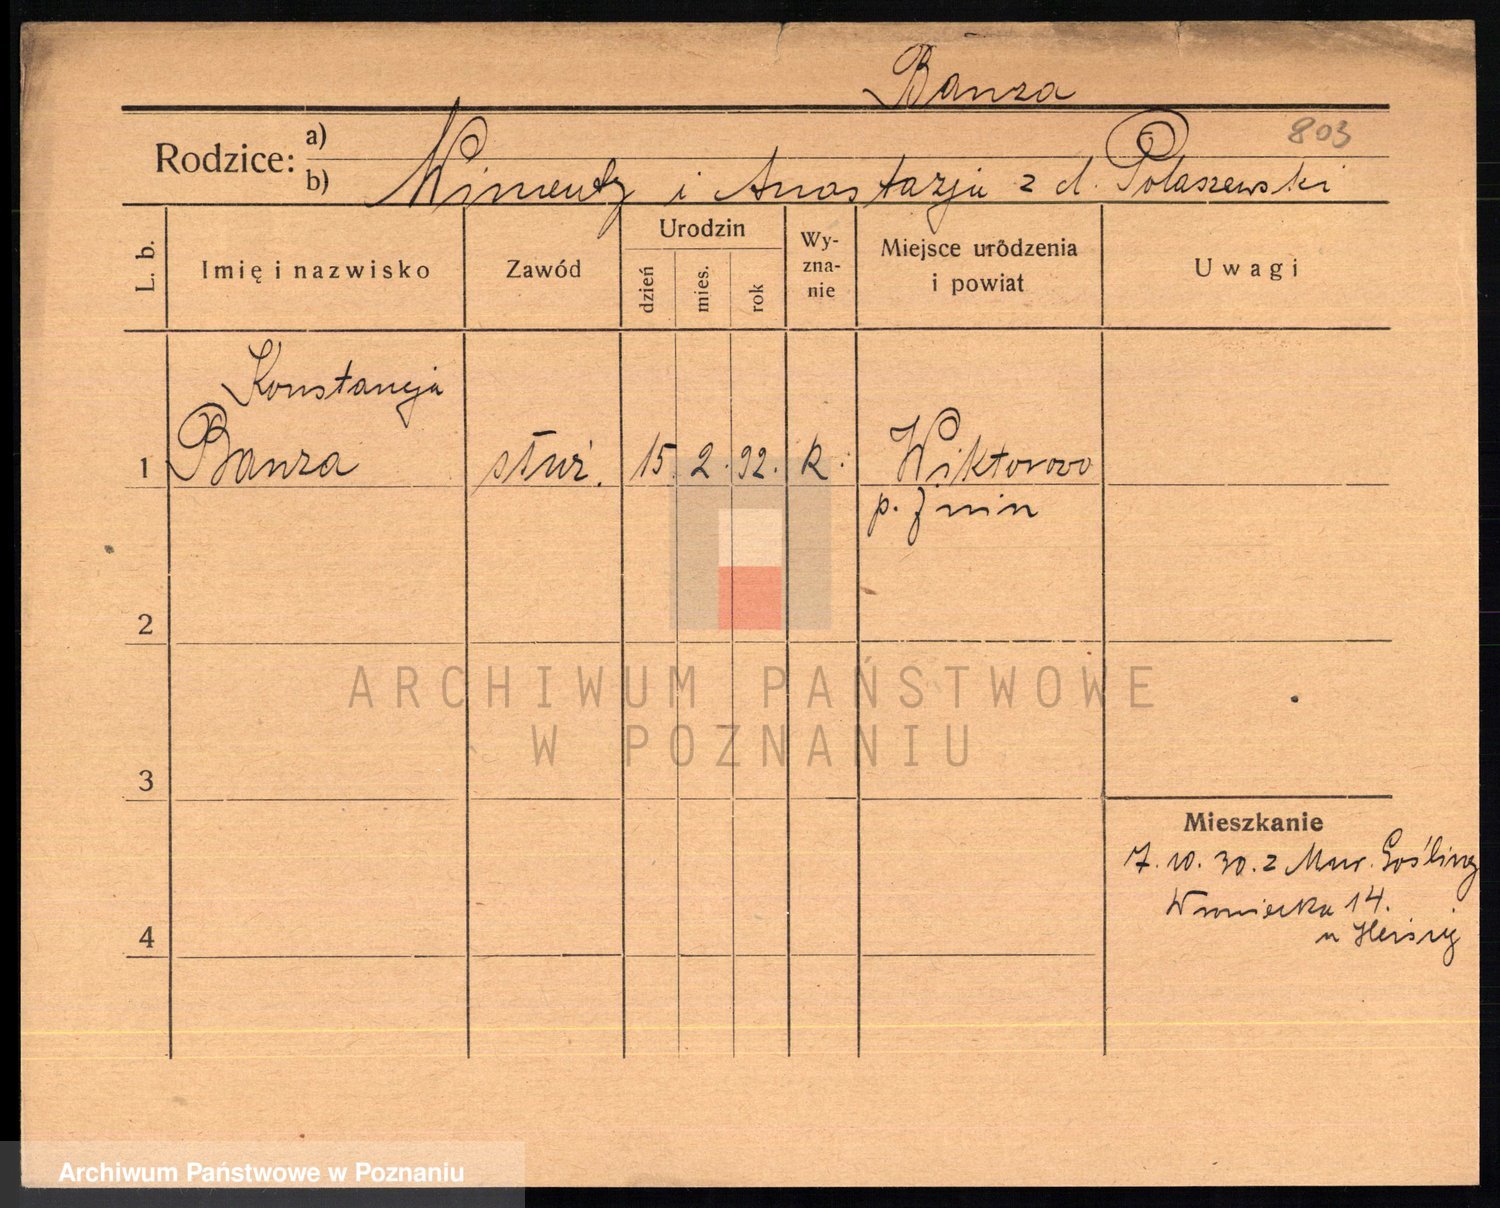 Banza
803
Rodzice: a)
b) Wincenty i Anastazja z d. Polaszewski
L. b.
Imię i nazwisko
Zawód
Urodzin
dzień
mies.
rok
Wy-
zna-
nie
Miejsce urodzenia
i powiat
Uwagi
Konstancja
1 Banza służ. 15. 2. 92. k. Wiktorowo
p. Żnin
2
ARCHIWUM PAŃSTWOWE
W POZNANIU
3
Mieszkanie
7. 10. 30. z Mur. Gośliny
Wroniecka 14.
4
Archiwum Państwowe w Poznaniu